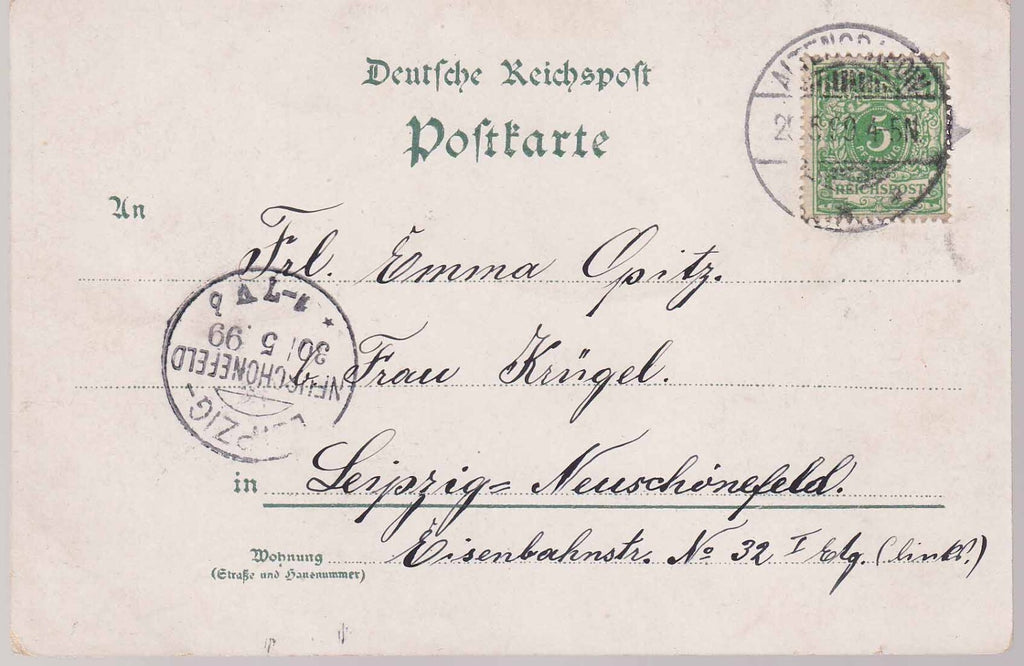 Deutsche Reichspost
Postkarte
5
REICHSPOST
4-5N
An
Frl. Emma Opitz.
b/ Frau Krügel.
in Leipzig= Neuschönefeld.
Wohnung Eisenbahnstr. No 32 I Etg. (links.)
(Straße und Hausnummer)
LEIPZIG-
NEUSCHÖNEFELD
30 5.99